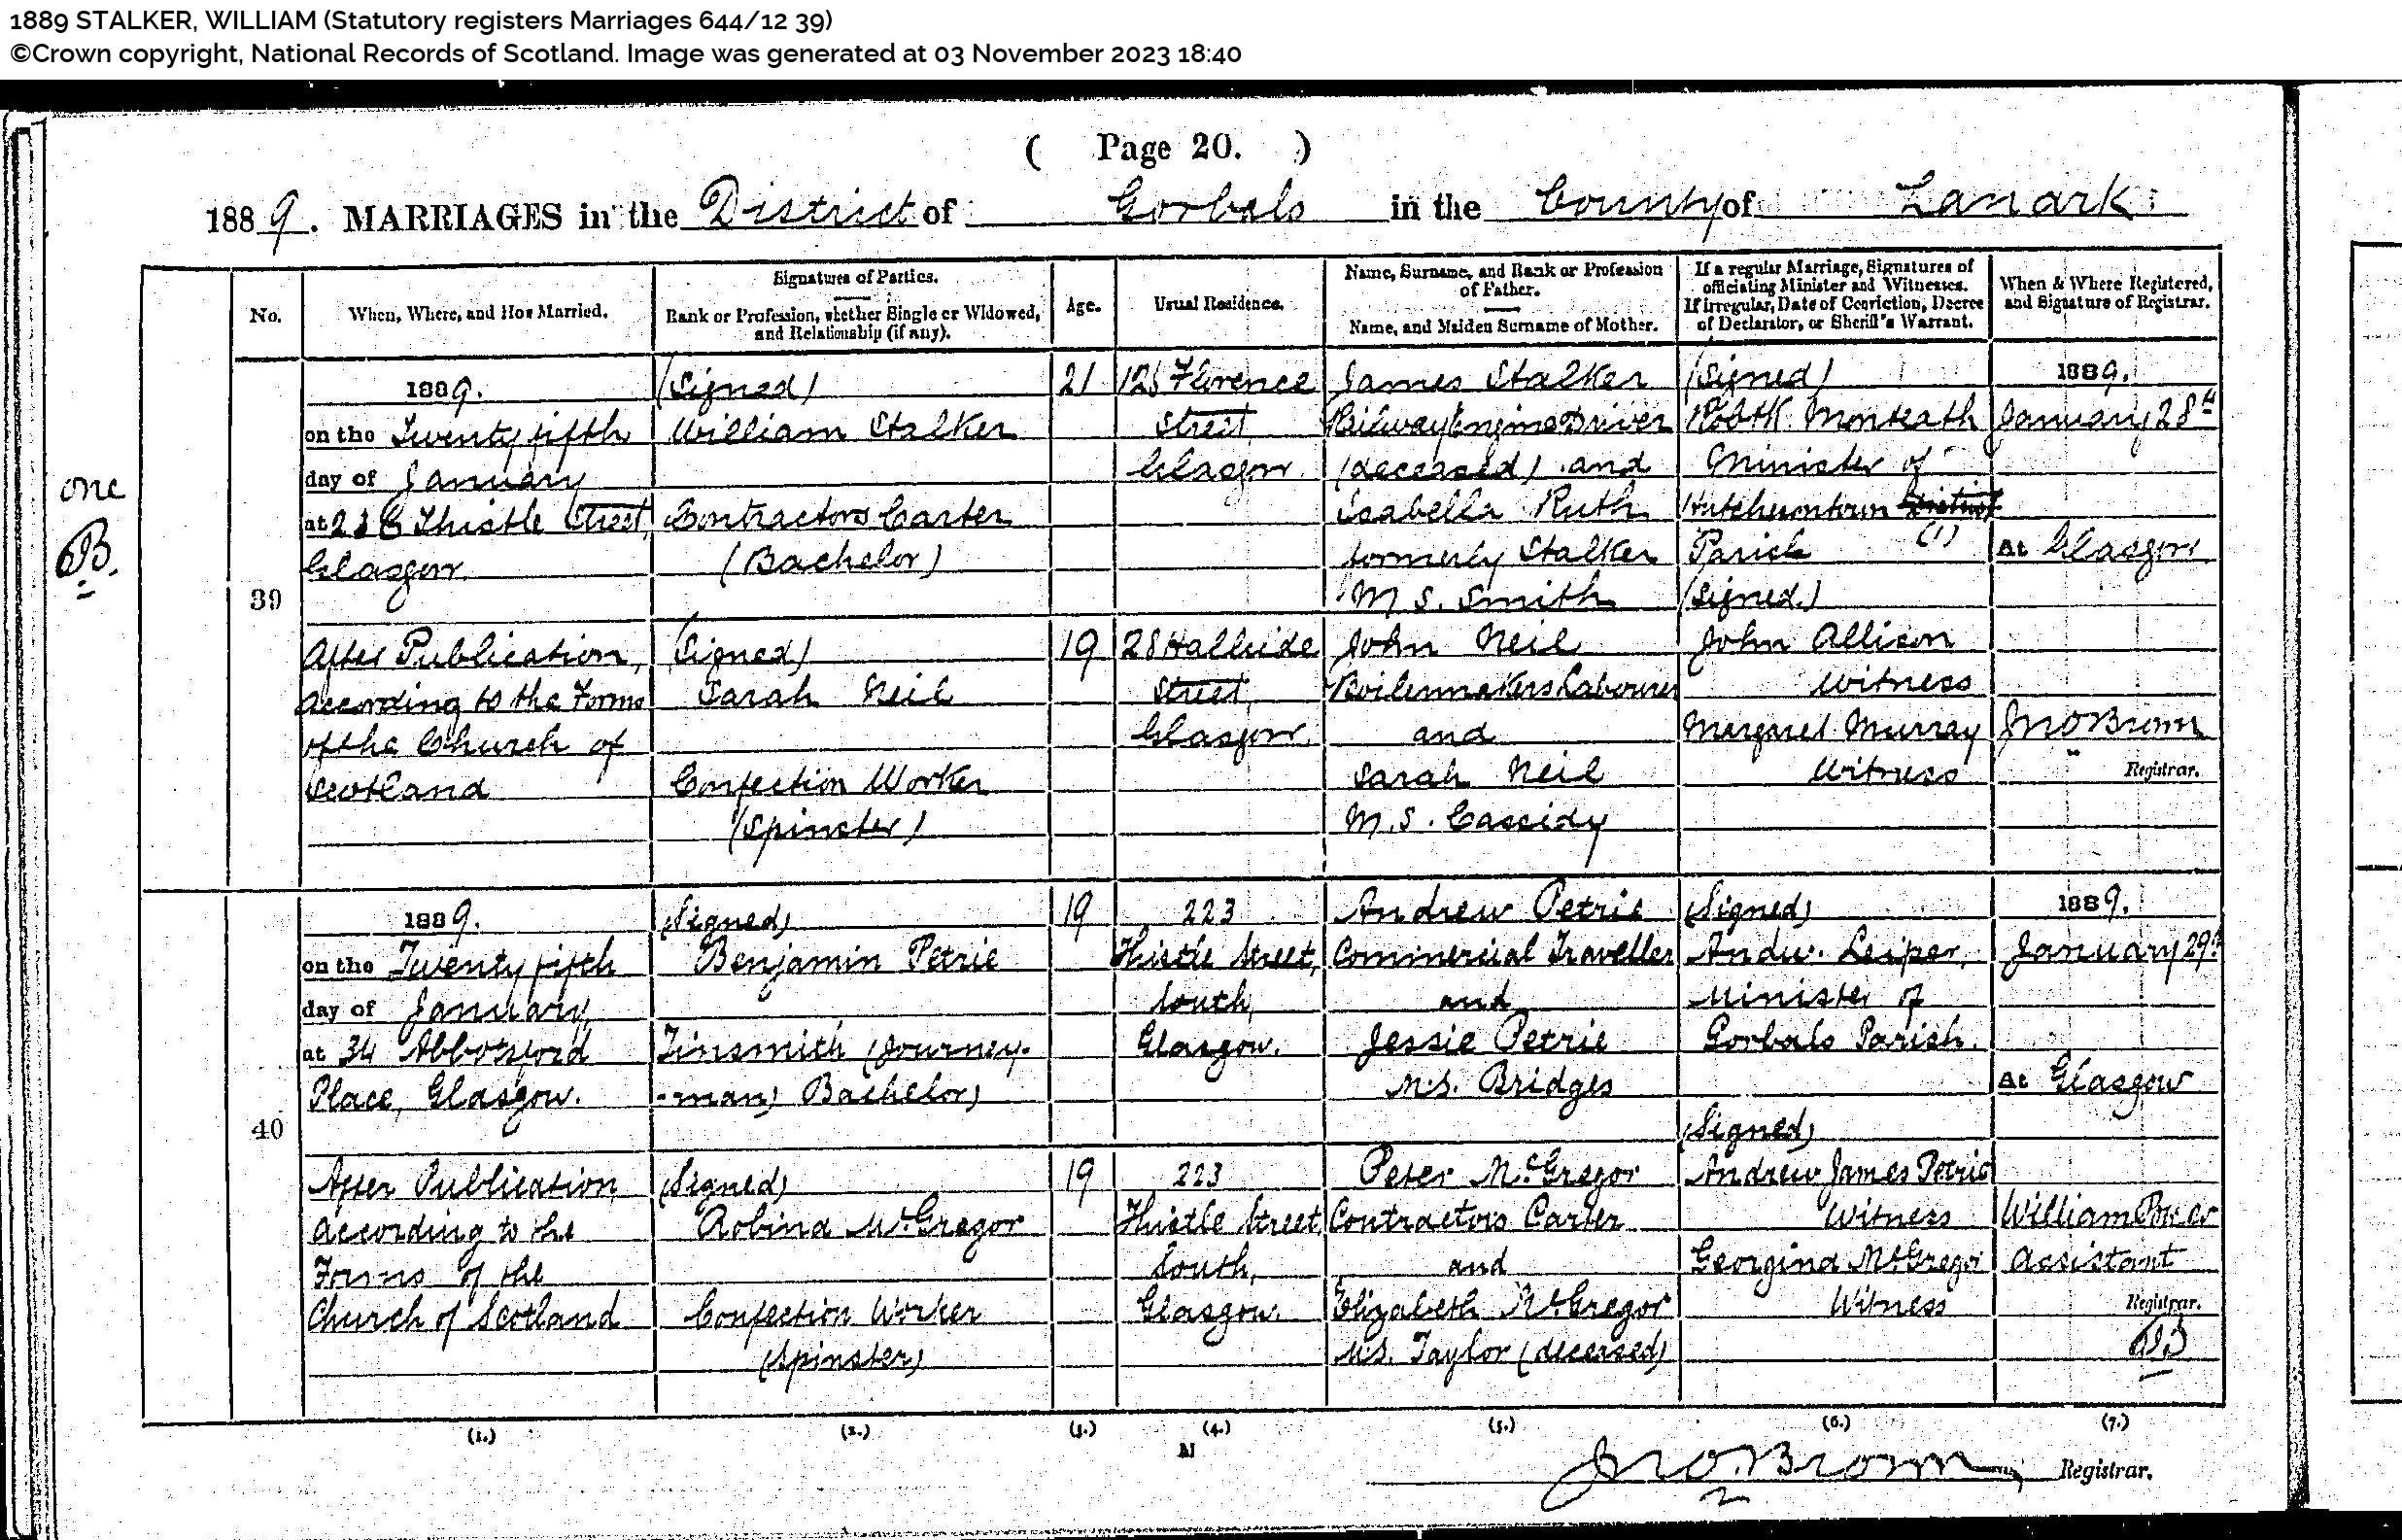 1889 STALKER, WILLIAM (Statutory registers Marriages 644/12 39)
©Crown copyright, National Records of Scotland. Image was generated at 03 November 2023 18:40
( Page 20. )
1889. MARRIAGES in the District of Gorbals in the County of Lanark
No.
When, Where, and How Married.
Signatures of Parties.
Rank or Profession, whether Single or Widowed,
and Relationship (if any).
Age.
Usual Residence.
Name, Surname, and Rank or Profession
of Father.
Name, and Maiden Surname of Mother.
If a regular Marriage, Signatures of
officiating Minister and Witnesses.
If irregular, Date of Conviction, Decree
of Declarator, or Sheriff's Warrant.
When & Where Registered,
and Signature of Registrar.
one
B.
39
1889.
on the Twenty fifth
day of January
at Thistle Street
Glasgow
After Publication,
according to the Forms
of the Church of
Scotland
(Signed)
William Stalker
Contractors Carter
(Bachelor)
(Signed)
Sarah Neil
Confection Worker
(Spinster)
21
19
Florence
Street
Glasgow.
28 Hallside
Street,
Glasgow.
James Stalker
Railway Engine Driver
(deceased) and
Isabella Ruth
formerly Stalker
M S. Smith
John Neil
Boilermakers Labourer
and
Sarah Neil
M.S. Cassidy
(Signed)
Robt Monteath
Minister of
Hutchesontown District
Parish (1)
(Signed.)
John Allison
Witness
Margaret Murray
Witness
1889.
January 28th
At Glasgow
Jno Brown
Registrar.
40
1889.
on the Twenty fifth
day of January
at 34 Abbotsford
Place, Glasgow.
After Publication
according to the
Forms of the
Church of Scotland
(Signed)
Benjamin Petrie
Tinsmith (Journey-
-man) Bachelor)
(Signed)
Robina McGregor
Confection Worker
(Spinster)
19
19
223
Thistle Street,
South,
Glasgow.
223
Thistle Street
South,
Glasgow.
Andrew Petrie
Commercial Traveller
and
Jessie Petrie
M.S. Bridges
Peter McGregor
Contractors Carter
and
Elizabeth McGregor
M.S. Taylor (deceased)
(Signed)
Andw. Leiper,
Minister of
Gorbals Parish.
(Signed)
Andrew James Petrie
Witness
Georgina McGregor
Witness
1889.
January 29th
At Glasgow
William
Assistant
Registrar.
(1.) (2.) (3.) (4.) (5.) (6.) (7.)
Jno. Brown, Registrar.